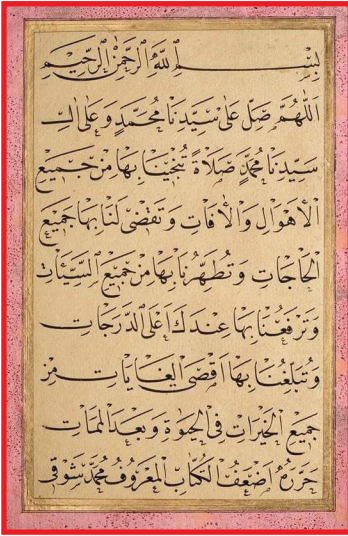 بِسْمِ اللهِ الرَّحْمٰنِ الرَّحِيمِ
اَللّٰهُمَّ صَلِّ عَلٰى سَيِّدِنَا مُحَمَّدٍ وَعَلٰى اٰلِ
سَيِّدِنَا مُحَمَّدٍ صَلَاةً تُنْجِينَا بِهَا مِنْ جَمِيعِ
الْاَهْوَالِ وَالْاٰفَاتِ وَتَقْضِى لَنَا بِهَا جَمِيعَ
الْحَاجَاتِ وَتُطَهِّرُنَا بِهَا مِنْ جَمِيعِ السَّيِّئَاتِ
وَتَرْفَعُنَا بِهَا عِنْدَكَ اَعْلَى الدَّرَجَاتِ
وَتُبَلِّغُنَا بِهَا اَقْصَى الْغَايَاتِ مِنْ
جَمِيعِ الْخَيْرَاتِ فِى الْحَيٰوةِ وَبَعْدَ الْمَمَاتِ
حَرَّرَهُ اَضْعَفُ الْكُتَّابِ الْمَعْرُوفُ مُحَمَّد شَوْقِى